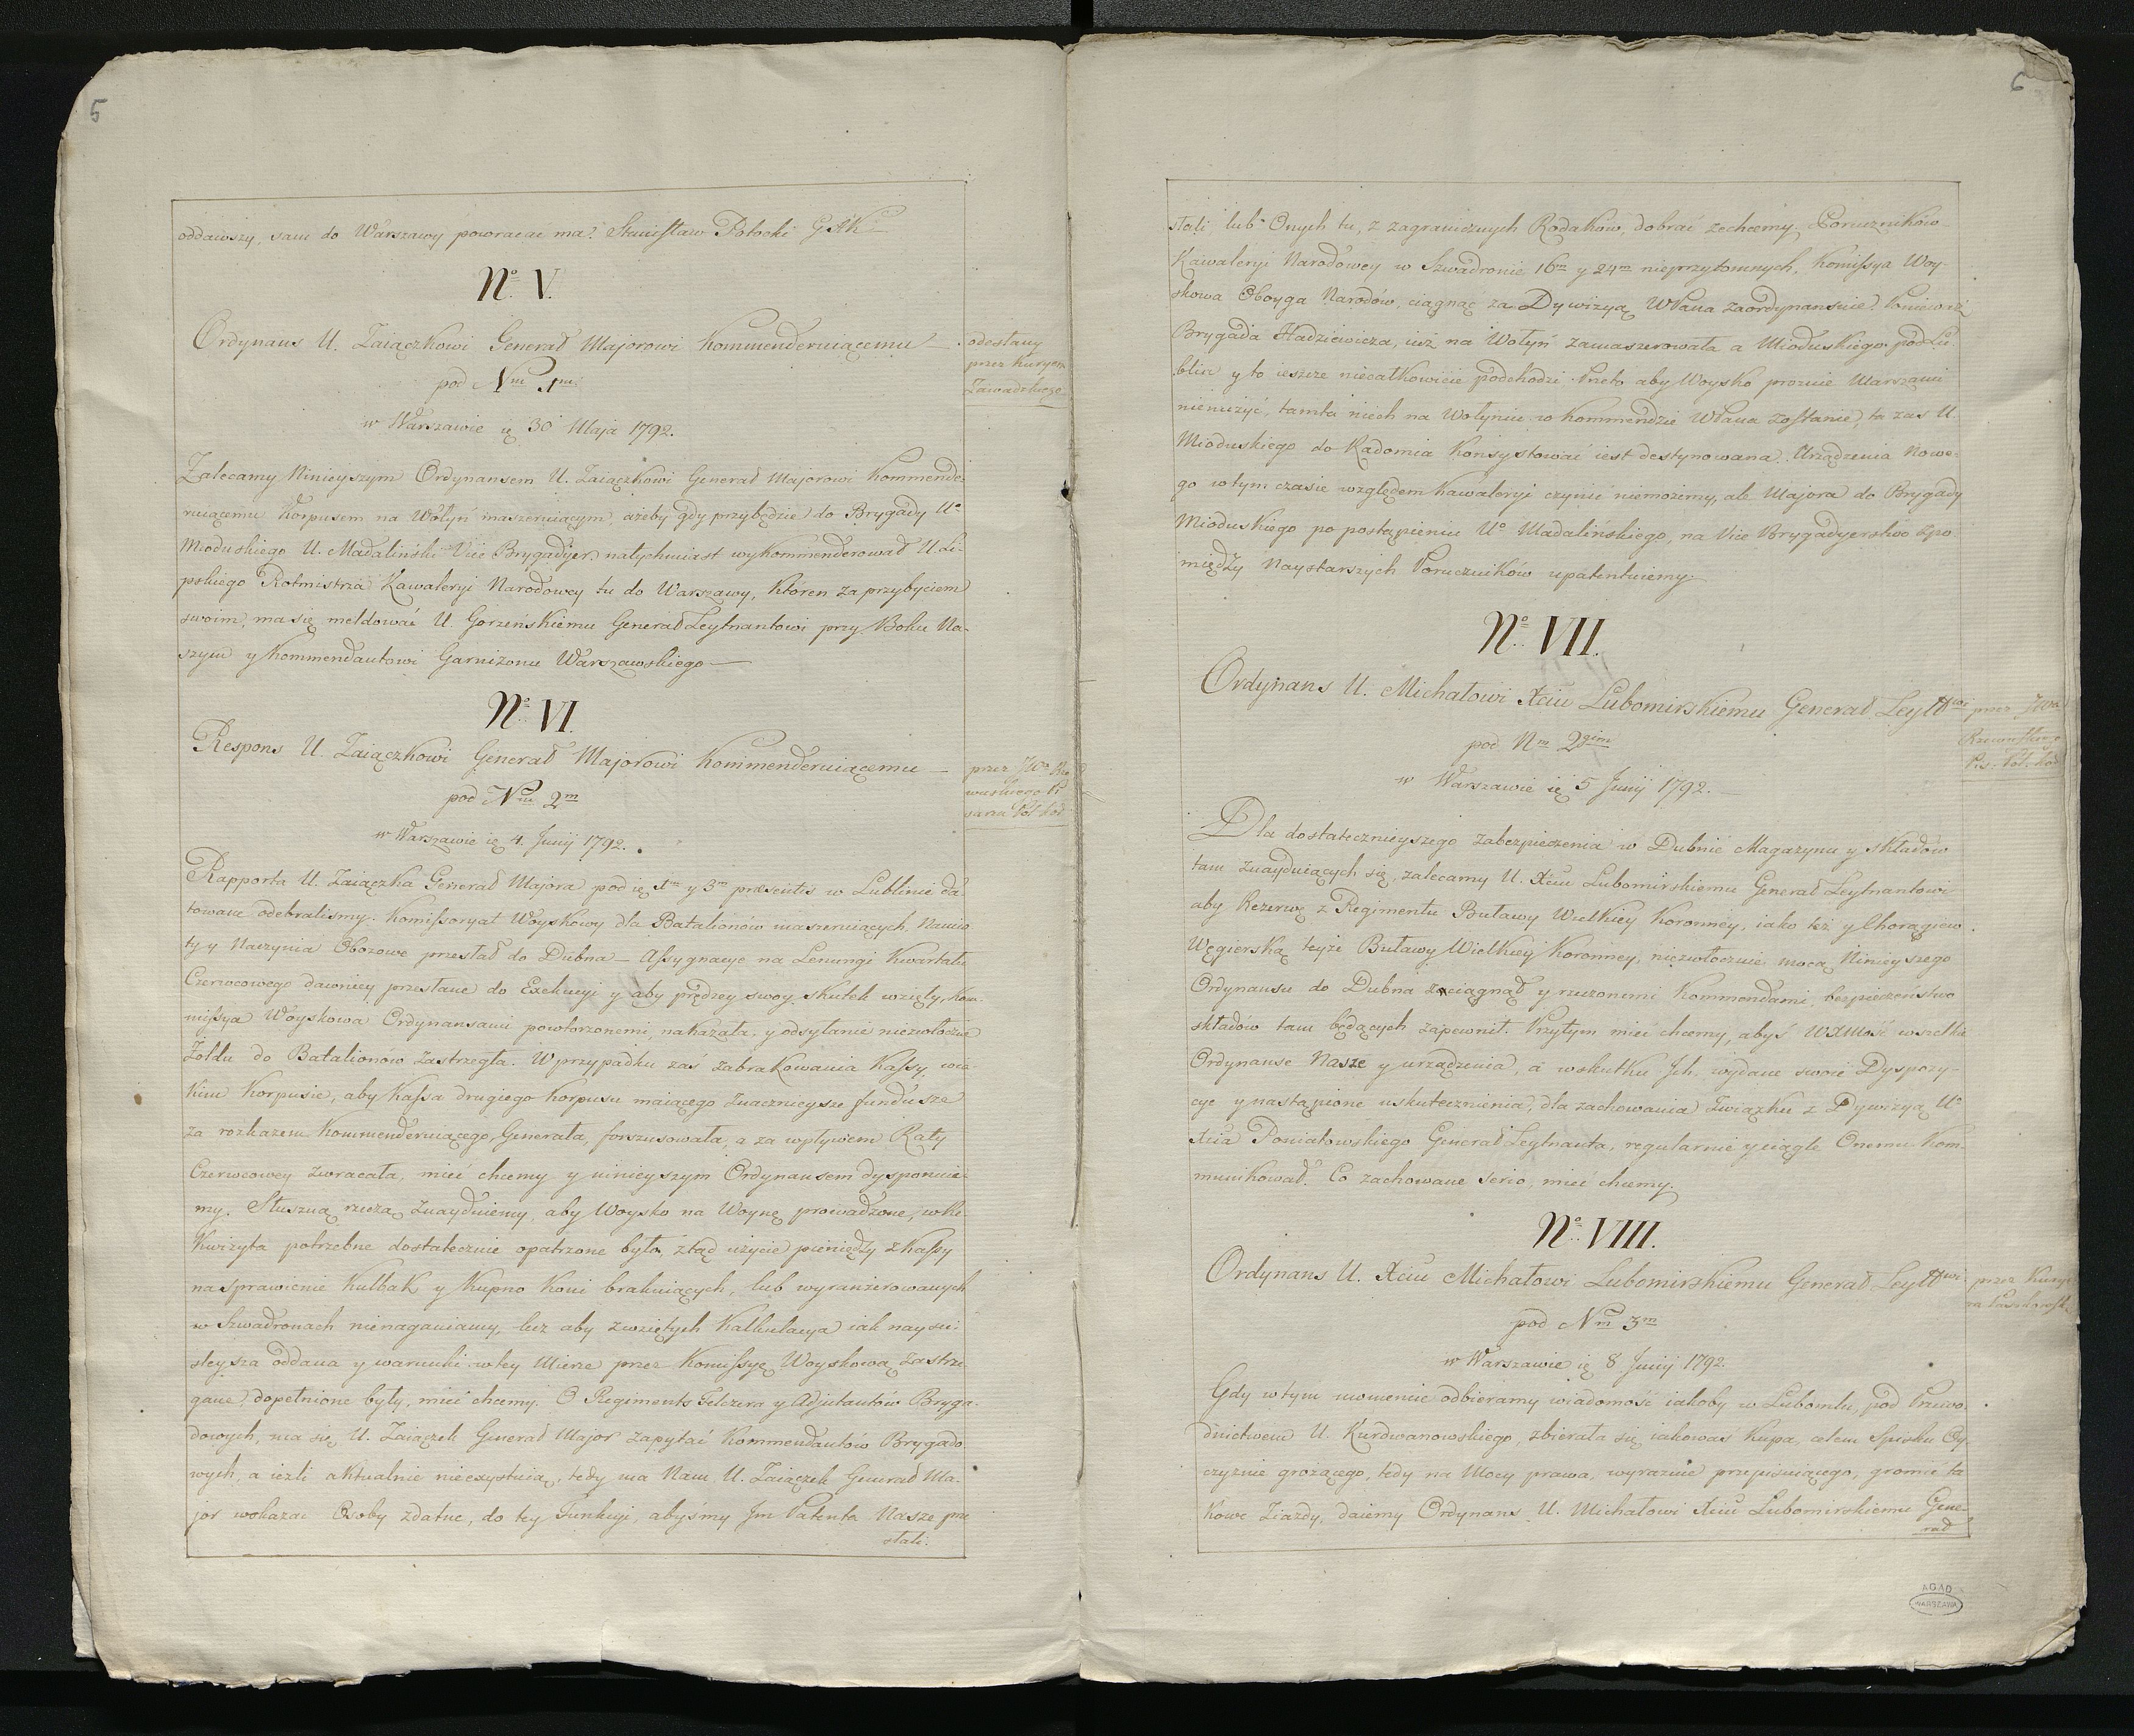 5
oddawszy, sam do Warszawy powracać ma. Stanisław Potocki GAK
No. V.
Ordynans U. Zaiączkowi Generał Majorowi Kommenderuiącemu
pod Nm 1m
w Warszawie ię 30 Maja 1792.
odesłany
przez Kuryera
Zawadzkiego
Zalecamy Ninieyszym Ordynansem U. Zaiączkowi Generał Majorowi Kommende-
ruiącemu Korpusem na Wołyń maszeruiącym, ażeby gdy przybędzie do Brygady Uo
Mioduskiego U. Madaliński Vice Brygadyer, natychmiast wykommenderował U. Li-
pskiego Rotmistrza Kawaleryi Narodowey tu do Warszawy, któren za przybyciem
swoim, ma się meldować U. Gorzeńskiemu Generał Leytnantowi przy Boku Na-
szym y Kommendantowi Garnizonu Warszawskiego
No. VI.
Respons U. Zaiączkowi Generał Majorowi Kommenderuiącemu
pod Nm 2m
w Warszawie ię 4. Junij 1792.
przez JWo Rze
wuskiego Pi
sarza Pol: Kor:
Rapporta U. Zaiączka Generał Majora pod ię 1m y 3m praesentis w Lublinie da-
towane odebraliśmy. Komissoryat Woyskowy dla Batalionów maszeruiących, Namio
ty y Naczynia Obozowe przesłał do Dubna – Assygnacye na Lenungi Kwartału
Czerwcowego dawniey przesłane do Exekucyi y aby prędzey swoy skutek wzięły, Kom-
missya Woyskowa Ordynansami powtorzonemi, nakazała, y odsyłanie niezwłocznie
Żołdu do Batalionów zastrzegła. W przypadku zaś zabrakowania Kassy, w ia-
kim Korpusie, aby Kassa drugiego Korpusu maiącego znacznieysze fundusze
za rozkazem Kommenderuiącego, Generała, forszusowała, a za wpływem Raty
Czerwcowey zwracała, mieć chcemy y ninieyszym Ordynansem dysponuie-
my. Słuszną rzeczą znayduiemy, aby Woysko na Woynę prowadzone, w Re-
kwizyta potrzebne dostatecznie opatrzone było, ztąd użycie pieniędzy z Kassy
na sprawienie Kulbak y Kupno Koni brakuiących, lub wyranżerowanych
w Szwadronach nienaganiamy, lecz aby z wziętych Kalkulacya iak nayści-
śleysza oddana y warunki w tey Mierze przez Komissyę Woyskową zastrze-
gane, dopełnione były, mieć chcemy. O Regiments Felczera y Adjutantów Bryga-
dowych, ma się U. Zaiączek Generał Major zapytać Kommendantów Brygado-
wych, a ieżli aktualnie nieexystuią, tedy ma Nam U. Zaiączek Generał Ma-
jor wskazać Osoby zdatne, do tey Funkcyi, abyśmy Jm Patenta Nasze prze
słali.
6
słali lub Onych tu, z zagranicznych Rodaków, dobrać zechcemy. Poruczników
Kawaleryi Narodowey w Szwadronie 16m y 24m nieprzytomnych, Komissya Woy-
skowa Oboyga Narodów, ciągnąć za Dywizyą WPana zaordynansuie. Ponieważ
Brygada Hadziewicza, iuż na Wołyń zamaszerowała a Mioduskiego pod Lu-
blin y to ieszcze niecałkowicie podchodzi. Przeto aby Woysko prożnie Marszami
nienużyć, tamta niech na Wołyniu w Kommendzie WPana zostanie, ta zas U.
Mioduskiego do Radomia Konsystować iest destynowana. Urządzenia Nowe-
go w tym czasie względem Kawaleryi czynić niemożemy, ale Majora do Brygady
Mioduskiego po postąpieniu Uo Madalińskiego, na Vice Brygadyerstwo z po
między Naystarszych Poruczników upatentuiemy.
No. VII.
Ordynans U. Michałowi Xciu Lubomirskiemu Generał Leyttwi
pod Nm 2gim
w Warszawie ię 5 Junij 1792.
przez JWo
Rzewuskiego
Pis: Pol: Kor:
Dla dostatecznieyszego zabezpieczenia w Dubnie Magazynu y Składów
tam znayduiących się, zalecamy U. Xciu Lubomirskiemu Generał Leytnantowi
aby Rezerwę z Regimentu Buławy Wielkiey Koronney, iako też y Chorągiew
Węgierską teyże Buławy Wielkiey Koronney, niezwłocznie mocą Ninieyszego
Ordynansu do Dubna zaciągnął y rzeczonemi Kommendami, bezpieczeństwo
składów tam będących zapewnił. Przytym mieć chcemy, abyś WXMość wszelkie
Ordynanse Nasze y urządzenia, a w skutku Jch wydane swoie Dyspozy-
cye y nastąpione uskutecznienia, dla zachowania Związku z Dywizyą Uo
Xcia Poniatowskiego Generał Leytnanta, regularnie y ciągle Onemu Kom-
munikował. Co zachowane serio, mieć chcemy.
No. VIII.
Ordynans U. Xciu Michałowi Lubomirskiemu Generał Leyttwi
pod Nm 3m
w Warszawie ię 8 Junij 1792.
przez Kurye
ra Paszkowsk:
Gdy w tym momencie odbieramy wiadomość iakoby w Lubomlu, pod Przewo-
dnictwem U. Kurdwanowskiego, zbierała się iakowaś Kupa, celem Spisku Oy-
czyznie grożącego, tedy na Mocy prawa, wyraznie przepisuiącego, gromić ta
kowe Ziazdy, daiemy Ordynans U. Michałowi Xciu Lubomirskiemu Gene-
rał
AGAD
WARSZAWA